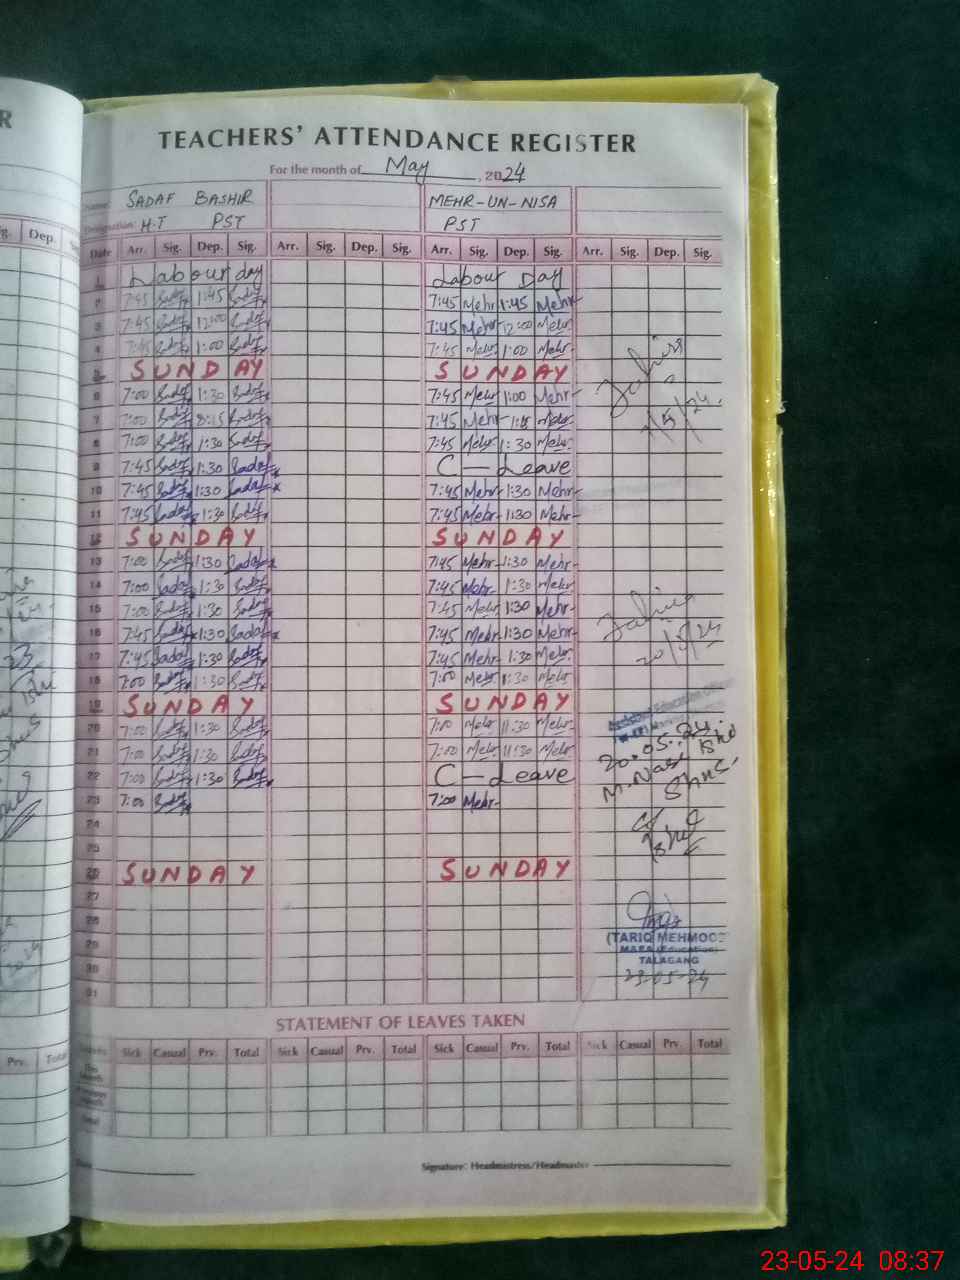 R
TEACHERS' ATTENDANCE REGISTER
For the month of May, 2024
Name: SADAF BASHIR MEHR-UN-NISA
Designation: H.T PST PST
Dep.
Date Arr. Sig. Dep. Sig. Arr. Sig. Dep. Sig. Arr. Sig. Dep. Sig. Arr. Sig. Dep. Sig.
1 Labour day Labour Day
2 7:45 Sadaf 1:45 Sadaf 7:45 Mehr 1:45 Mehr
3 7:45 Sadaf 12:00 Sadaf 7:45 Mehr 12:00 Mehr
4 7:45 Sadaf 1:00 Sadaf 7:45 Mehr 1:00 Mehr
5 SUNDAY SUNDAY
6 7:00 Sadaf 1:30 Sadaf 7:45 Mehr 1:00 Mehr
7 7:00 Sadaf Sadaf 7:45 Mehr Mehr
7/5/24
8 7:00 Sadaf 1:30 Sadaf 7:45 Mehr 1:30 Mehr
9 7:45 Sadaf 1:30 Sadaf C — Leave
10 7:45 Sadaf 1:30 Sadaf 7:45 Mehr 1:30 Mehr
11 7:45 Sadaf 1:30 Sadaf 7:45 Mehr 1:30 Mehr
12 SUNDAY SUNDAY
13 7:00 Sadaf 1:30 Sadaf 7:45 Mehr 1:30 Mehr
14 7:00 Sadaf 1:30 Sadaf 7:45 Mehr 1:30 Mehr
15 7:00 Sadaf 1:30 Sadaf 7:45 Mehr 1:30 Mehr
16 7:45 Sadaf 1:30 Sadaf 7:45 Mehr 1:30 Mehr
17 7:45 Sadaf 1:30 Sadaf 7:45 Mehr 1:30 Mehr
20/5/24
18 7:00 Sadaf 1:30 Sadaf 7:00 Mehr 1:30 Mehr
19 SUNDAY SUNDAY
20 7:00 Sadaf 1:30 Sadaf 7:00 Mehr 11:30 Mehr
21 7:00 Sadaf 1:30 Sadaf 7:00 Mehr 11:30 Mehr
20.05.24
22 7:00 Sadaf 1:30 Sadaf C — Leave
23 7:00 Sadaf 7:00 Mehr
24
25
26 SUNDAY SUNDAY
27
28
29 (TARIQ MEHMOOD
30 TALAGANG
31 23-05-24
STATEMENT OF LEAVES TAKEN
Prv. Total
Sick Casual Prv. Total Sick Casual Prv. Total Sick Casual Prv. Total Sick Casual Prv. Total
This Month
Total
Signature: Headmistress/Headmaster
23-05-24 08:37